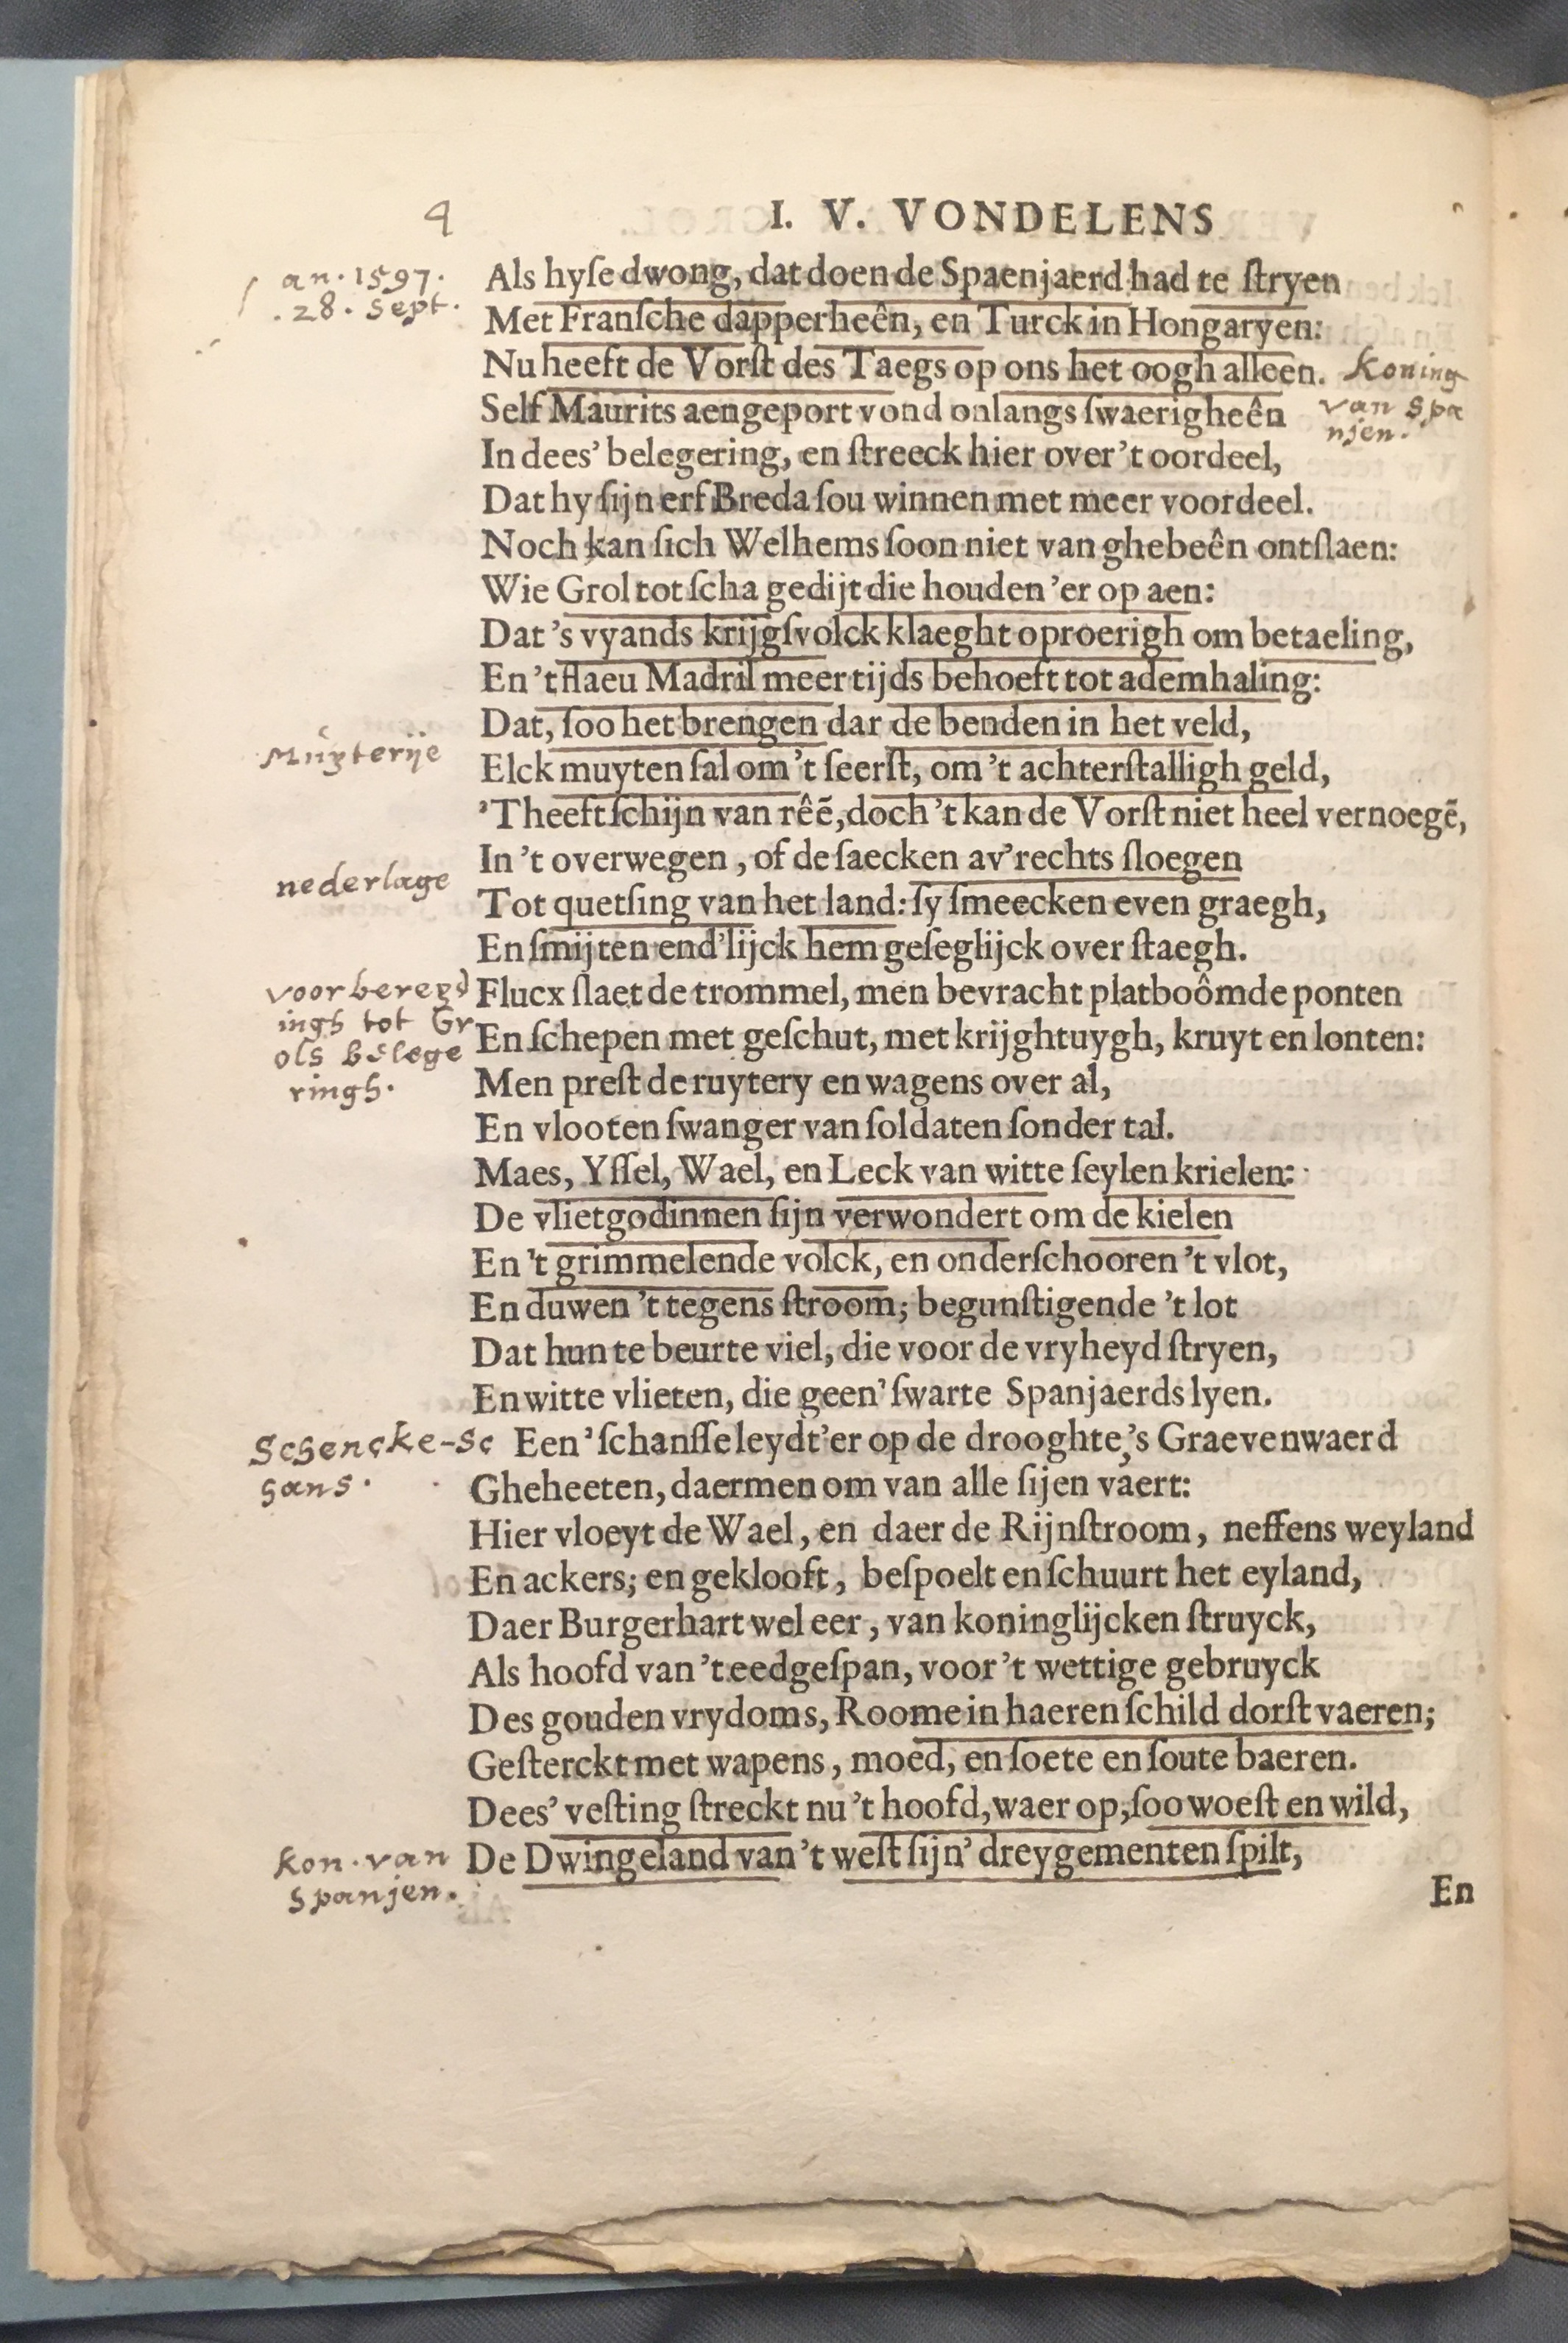 4
I. V. VONDELENS
an. 1597.
. 28. Sept.
Als hyſe dwong, dat doen de Spaenjaerd had te ſtryen
Met Franſche dapperheên, en Turck in Hongaryen:
Nu heeft de Vorſt des Taegs op ons het oogh alleen.
Koning
van Spa
njen.
Self Maurits aengeport vond onlangs ſwaerigheên
In dees' belegering, en ſtreeck hier over 't oordeel,
Dat hy ſijn erf Breda ſou winnen met meer voordeel.
Noch kan ſich Welhems ſoon niet van ghebeên ontſlaen:
Wie Grol tot ſcha gedijt die houden 'er op aen:
Dat 's vyands krijgſvolck klaeght oproerigh om betaeling,
En 't flaeu Madril meer tijds behoeft tot ademhaling:
Dat, ſoo het brengen dar de benden in het veld,
Muyterije
Elck muyten ſal om 't ſeerſt, om 't achterſtalligh geld,
'T heeft ſchijn van rêẽ, doch 't kan de Vorſt niet heel vernoegẽ,
In 't overwegen, of de ſaecken av'rechts ſloegen
nederlage
Tot quetſing van het land: ſy ſmeecken even graegh,
En ſmijten end'lijck hem geſeglijck over ſtaegh.
voorbereyd
ingh tot Gr
ols belege
ringh.
Flucx ſlaet de trommel, men bevracht platboômde ponten
En ſchepen met geſchut, met krijghtuygh, kruyt en lonten:
Men preſt de ruytery en wagens over al,
En vlooten ſwanger van ſoldaten ſonder tal.
Maes, Yſſel, Wael, en Leck van witte ſeylen krielen:
De vlietgodinnen ſijn verwondert om de kielen
En 't grimmelende volck, en onderſchooren 't vlot,
En duwen 't tegens ſtroom; begunſtigende 't lot
Dat hun te beurte viel, die voor de vryheyd ſtryen,
En witte vlieten, die geen' ſwarte Spanjaerds lyen.
Schencke-Sc
hans.
Een' ſchanſſe leydt'er op de drooghte, 's Graevenwaerd
Gheheeten, daermen om van alle ſijen vaert:
Hier vloeyt de Wael, en daer de Rijnſtroom, neffens weyland
En ackers; en geklooft, beſpoelt en ſchuurt het eyland,
Daer Burgerhart wel eer, van koninglijcken ſtruyck,
Als hoofd van 't eedgeſpan, voor 't wettige gebruyck
Des gouden vrydoms, Roome in haeren ſchild dorſt vaeren;
Geſterckt met wapens, moed, en ſoete en ſoute baeren.
Dees' veſting ſtreckt nu 't hoofd, waer op, ſoo woeſt en wild,
kon. van
Spanjen.
De Dwingeland van 't weſt ſijn' dreygementen ſpilt,
En